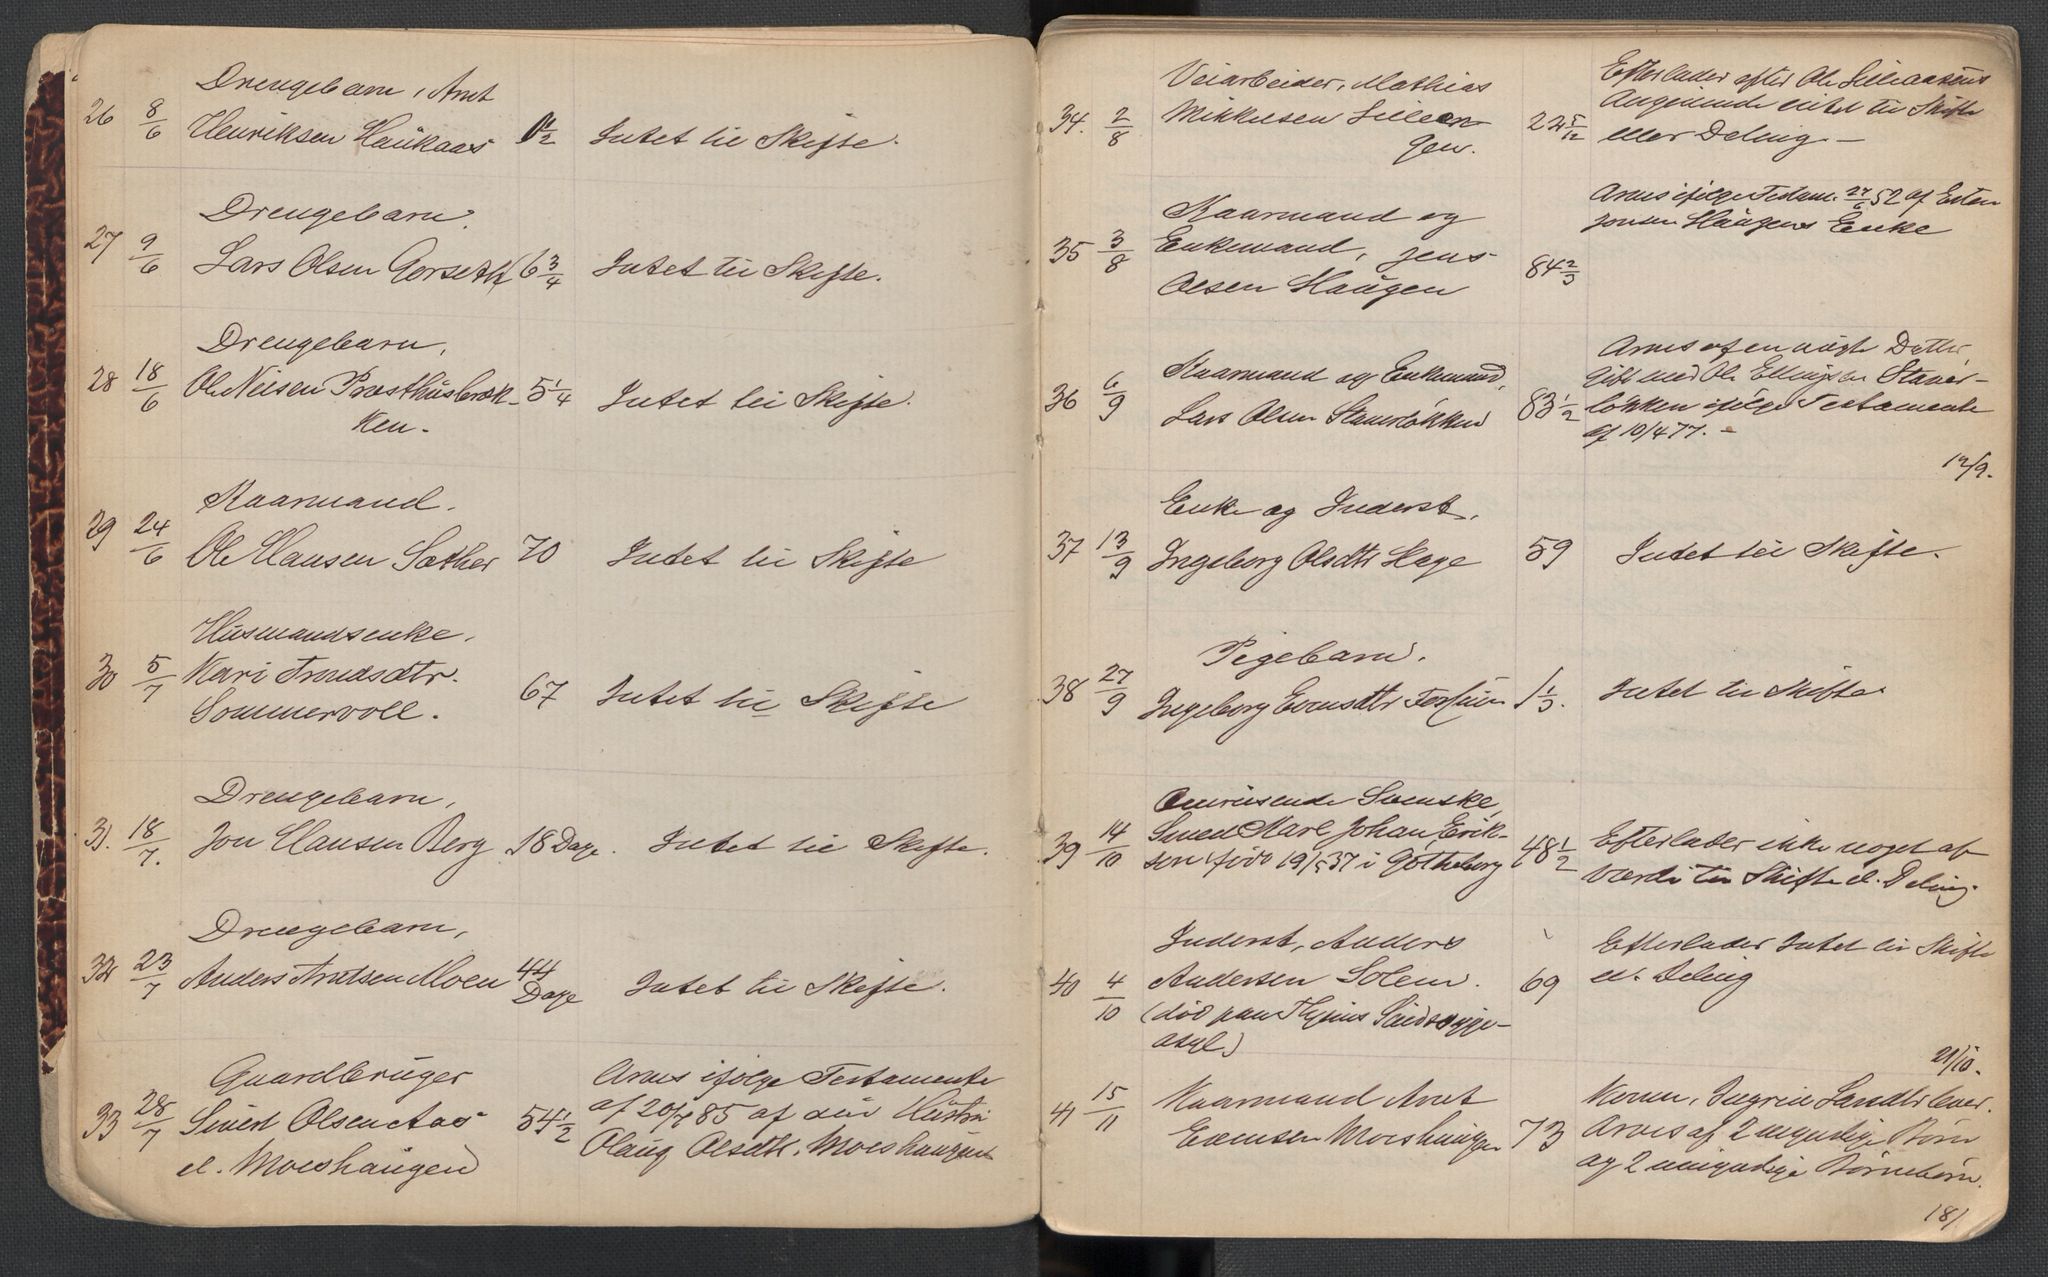 Drengebarn, Arnt
26 8/6 Henriksen Haukaas 1/2 Intet til Skifte.
Drengebarn.
27 9/6 Lars Olsen Gorseth 6 3/4 Intet til Skifte.
Drengebarn,
28 18/6 Ole Nilsen Præsthusbræk- 5 1/4 Intet til Skifte.
ken.
Kaarmand.
29 24/6 Ole Hansen Sæther 70 Intet til Skifte
Husmandsenke,
30 5/7 Kari Trondsdtr. 67 Intet til Skifte
Sommervoll.
Drengebarn,
31. 18/7. Jon Hansen Berg 18 Dage. Intet til Skifte.
Drengebarn,
32 23/7 Anders Arntsen Moen 44 Dage Intet til Skifte.
Gaardbruger
33 28/7 Sivert Olsen Aas 54 1/2
el. Moeshaugen
Arves ifølge Testamente
af 20/7 85 af sin Hustru
Olaug Olsdtr. Moeshaugen
Veiarbeider, Mathias
34. 2/8 Mikkelsen Lilleen- 22 5/12
gen.
Efterlader efter Ole Lilleaasens
Angivende intet til Skifte
eller Deling —
Kaarmand og
35 3/8 Enkemand, Jens 84 2/3
Olsen Haugen
Arves ifølge Testam. 27/6 52 af Esten
Jonsen Haugens Enke
Kaarmand og Enkemand,
36 6/9 Lars Olsen Stamsløkken 83 1/2
Arves af en Datter,
gift med Ole Ellingsen
løkken ifølge Testamente
af 10/4 77. —
12/9.
Enke og Inderst,
37 13/9 Ingeborg Olsdtr Hage 59 Intet til Skifte.
Pigebarn.
38 27/9 Ingeborg Evensdtr 1 1/3. Intet til Skifte.
Omreisende Svenske,
39 14/10 Smed Karl Johan Erik- 48 1/2
sen, født 19/5 37 i Gøtheborg
Efterlader ikke noget af
Værdi til Skifte el. Deling.
Inderst, Anders
40 4/10 Andersen Solem. 69
(død paa Sindssyge-
asyl.)
Efterlader Intet til Skifte
el. Deling
21/10.
41 15/11 Kaarmand Arnt
Evensen Moeshaugen 73
Konen, Ingrid lever.
Arves af 2 myndige Børn
og 2 umyndige Børnebørn.
18/